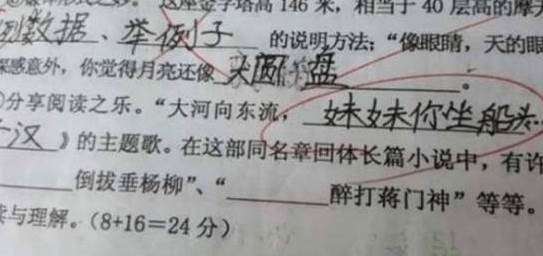 这座金字塔高 146 米，相当于 40 层高的摩
列数据、举例子 的说明方法；“像眼睛，天的眼
感意外，你觉得月亮还像 大圆 盘 。
分享阅读之乐。“大河向东流， 妹妹你坐船头
汉 》的主题歌。在这部同名章回体长篇小说中，有许
倒拔垂杨柳”、“ 醉打蒋门神”等等。
与理解。（8+16=24 分）